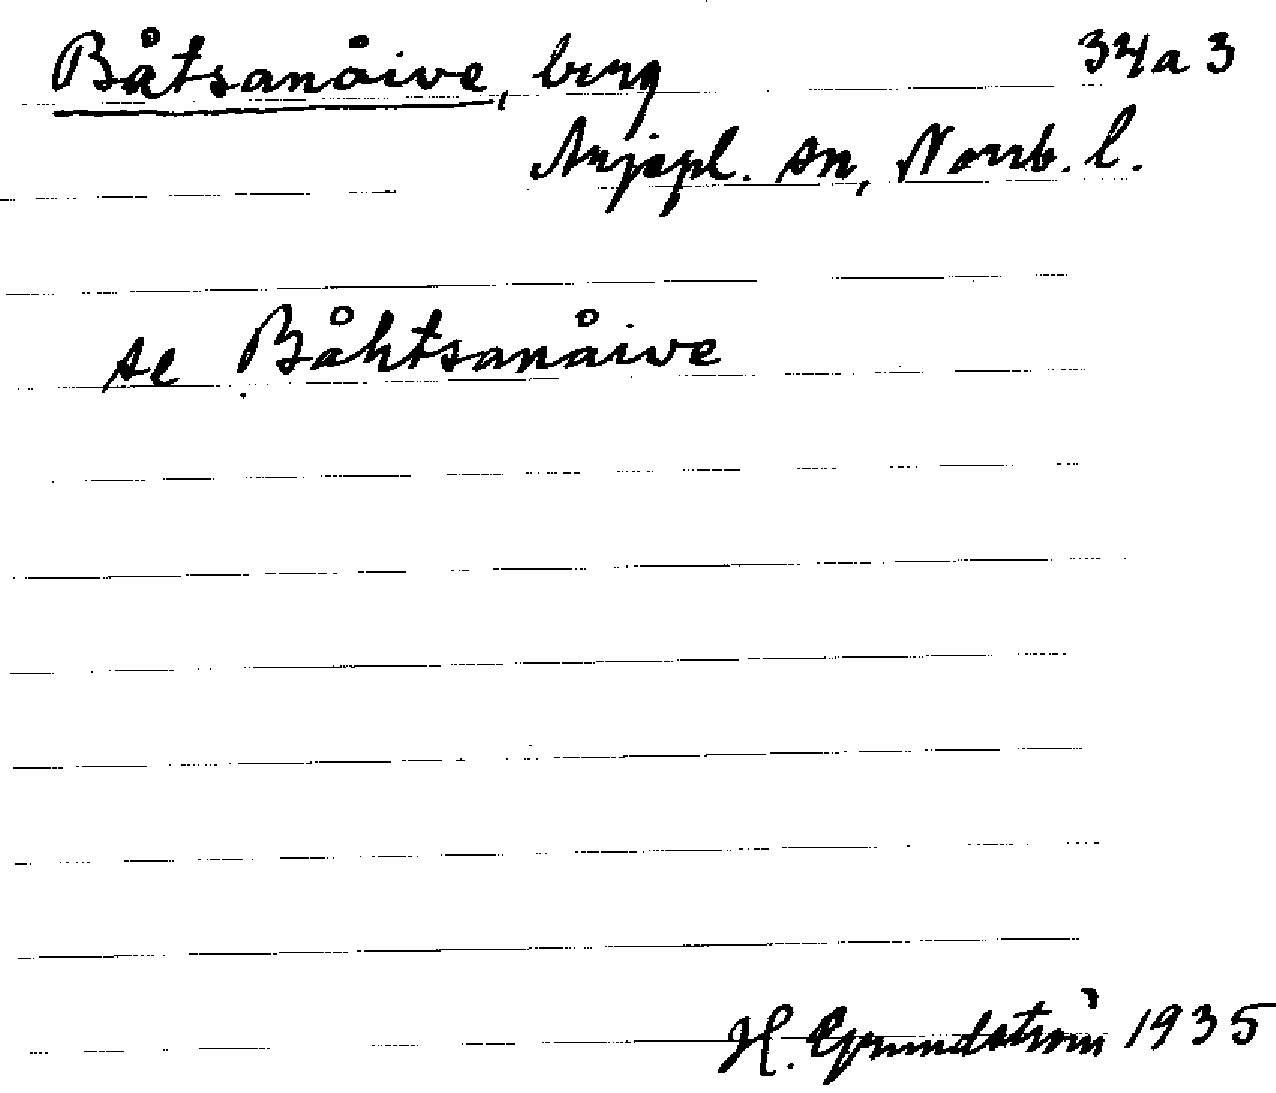 Båtsanåive, berg 34a3
Arjepl. sn, Norrb. l.
se Båhtsanåive
H. Grundström 1935